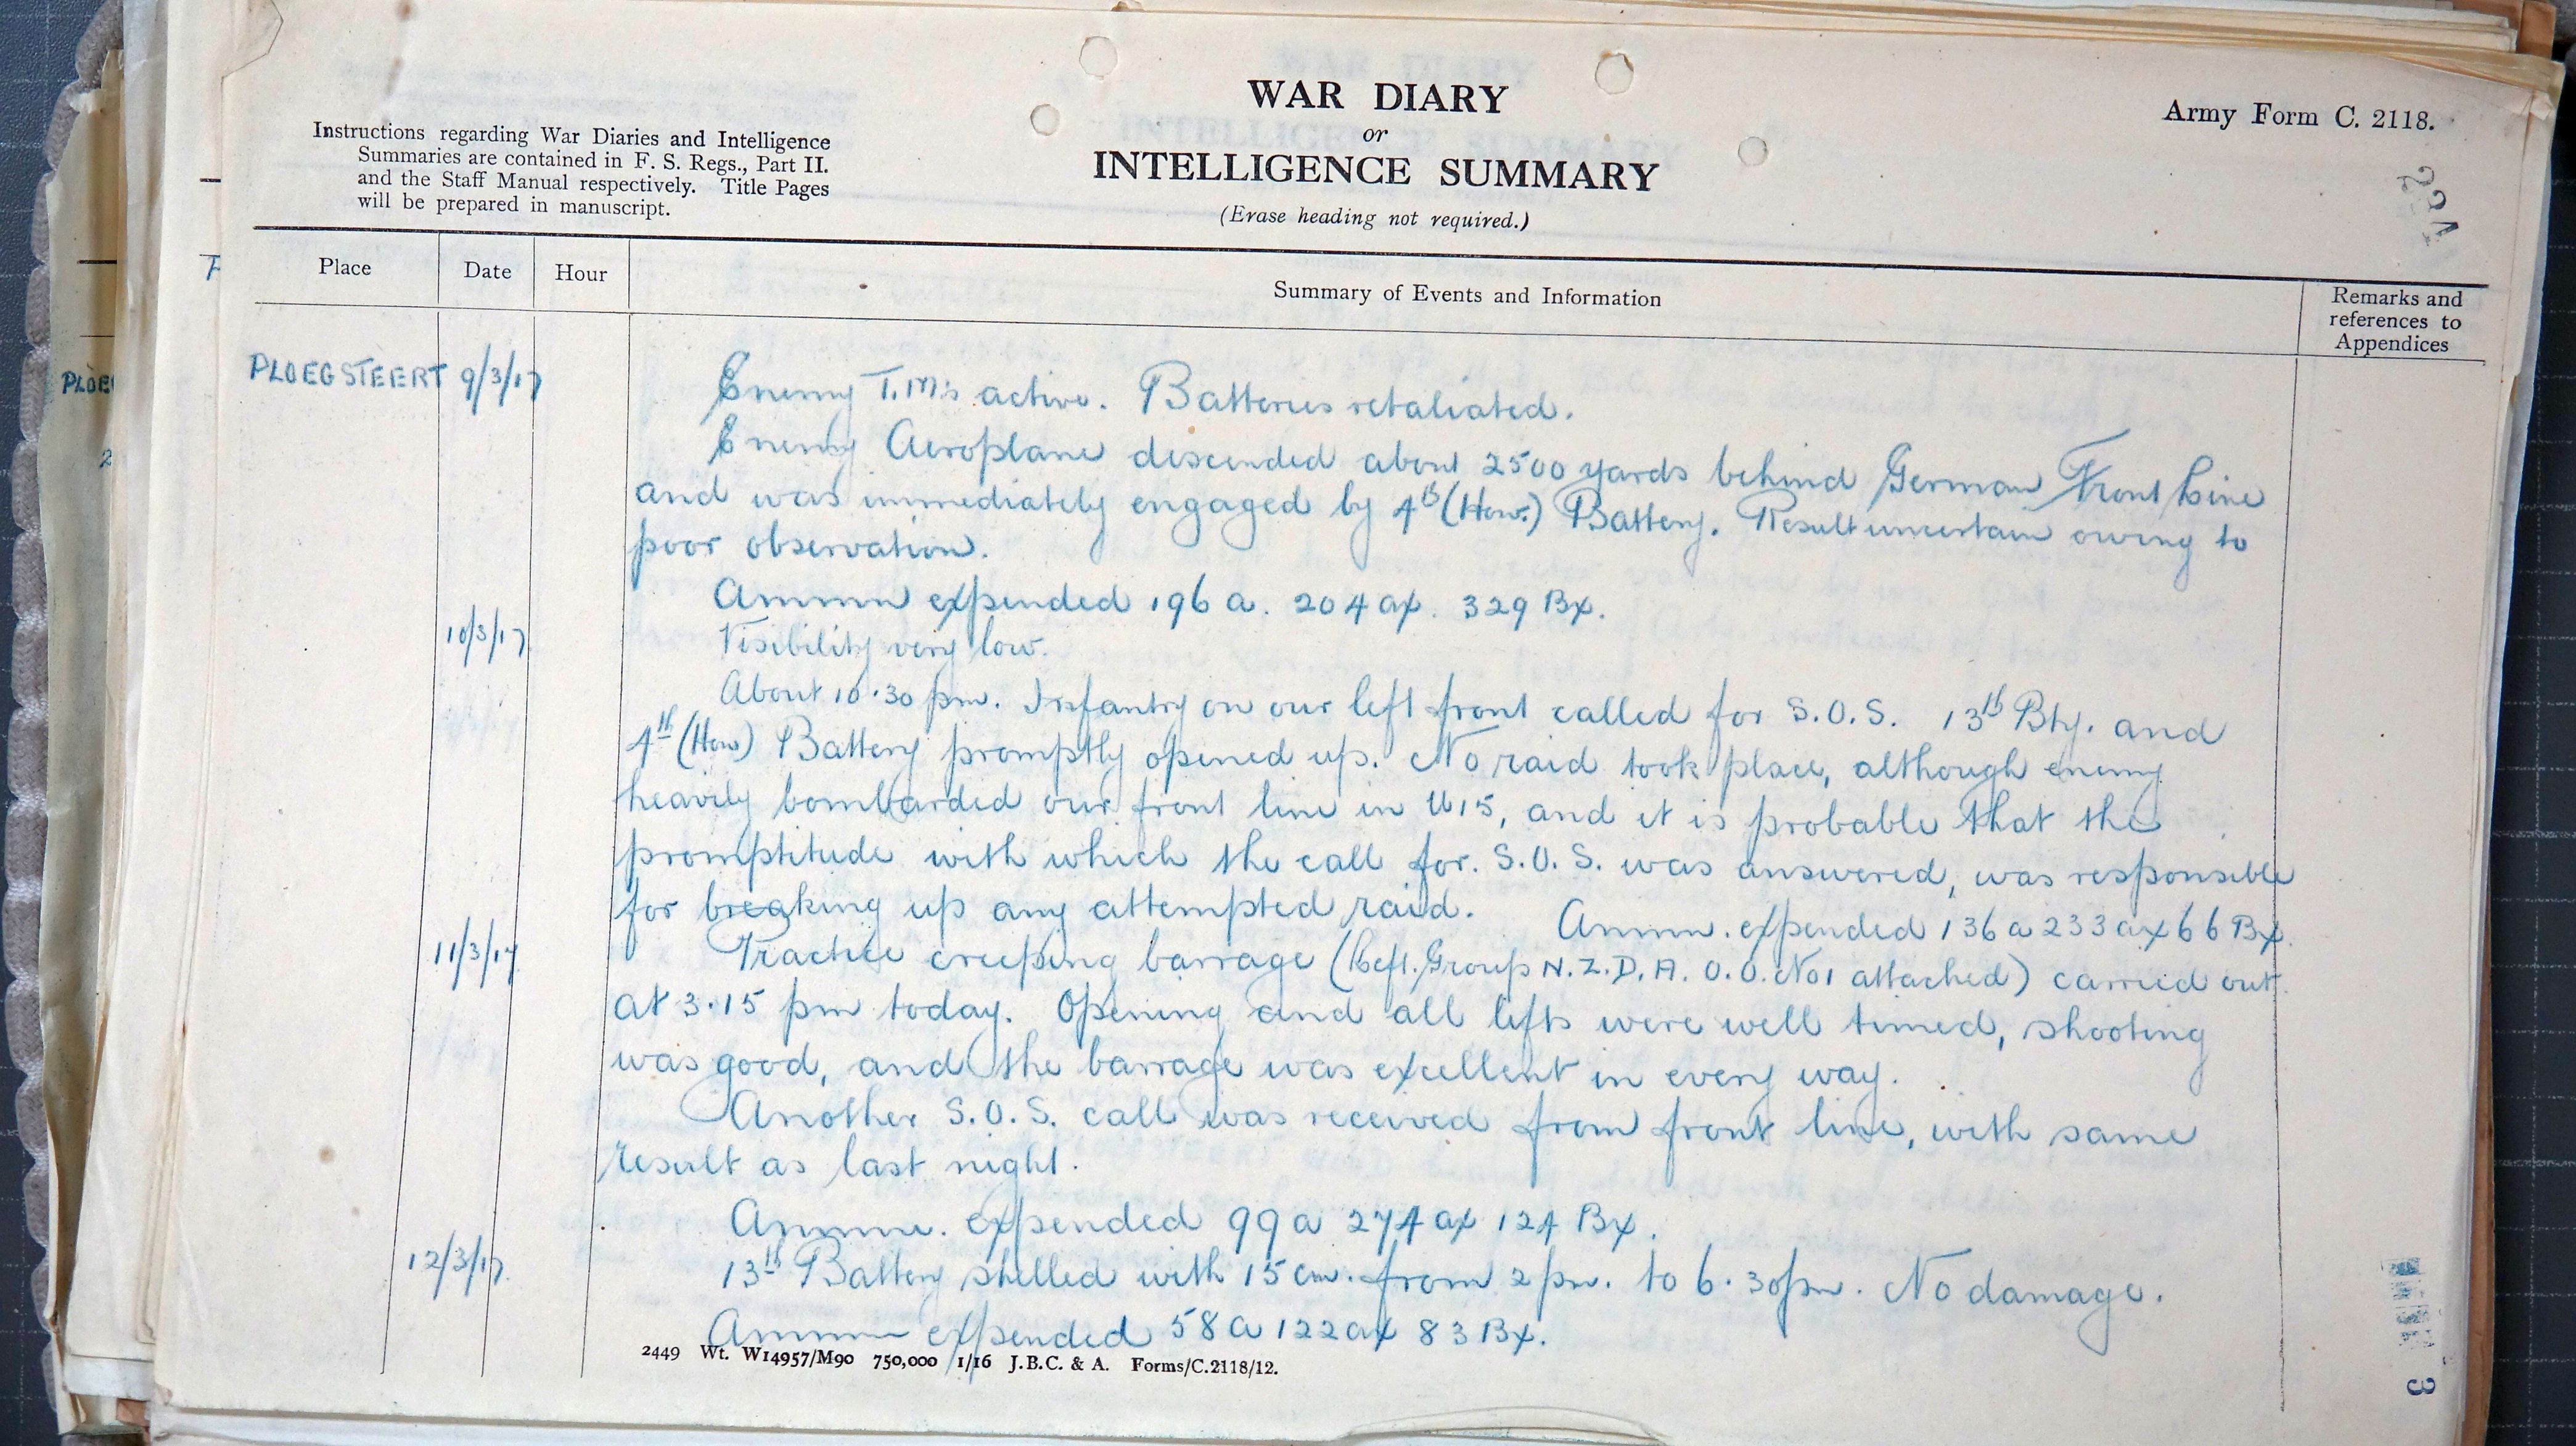 WAR DIARY
or
INTELLIGENCE SUMMARY
(Erase heading not required.)
Army Form C. 2118.
Instructions regarding War Diaries and Intelligence
Summaries are contained in F. S. Regs., Part II.
and the Staff Manual respectively. Title Pages
will be prepared in manuscript.
Place Date Hour Summary of Events and Information Remarks and
references to
Appendices
PLOEGSTEERT 9/3/17 Enemy T.M's active. Batteries retaliated.
Enemy Aeroplane descended about 2500 yards behind German Front Line
and was immediately engaged by 4th (How.) Battery. Result uncertain owing to
poor observation.
Ammn expended 196 a. 204 ax. 329 Bx.
10/3/17 Visibility very low.
About 10.30 pm. Infantry on our left front called for S.O.S. 13th Bty. and
4th (How) Battery promptly opened up. No raid took place, although enemy
heavily bombarded our front line in U15, and it is probable that the
promptitude with which the call for S.O.S. was answered, was responsible
for breaking up any attempted raid. Ammn. expended 136 a 233 ax 66 Bx.
11/3/17 Practice creeping barrage (Left. Group N.Z.D.A. O.O. No1 attached) carried out
at 3.15 pm today. Opening and all lifts were well timed, shooting
was good, and the barrage was excellent in every way.
Another S.O.S. call was received from front line, with same
result as last night.
Ammn. expended 99 a 274 ax 124 Bx.
12/3/17. 13th Battery shelled with 15 cm. from 2 pm. to 6.30pm. No damage.
Ammn expended 58 a 122 ax 83 Bx.
2449 Wt. W14957/M90 750,000 1/16 J.B.C. & A. Forms/C.2118/12.
3